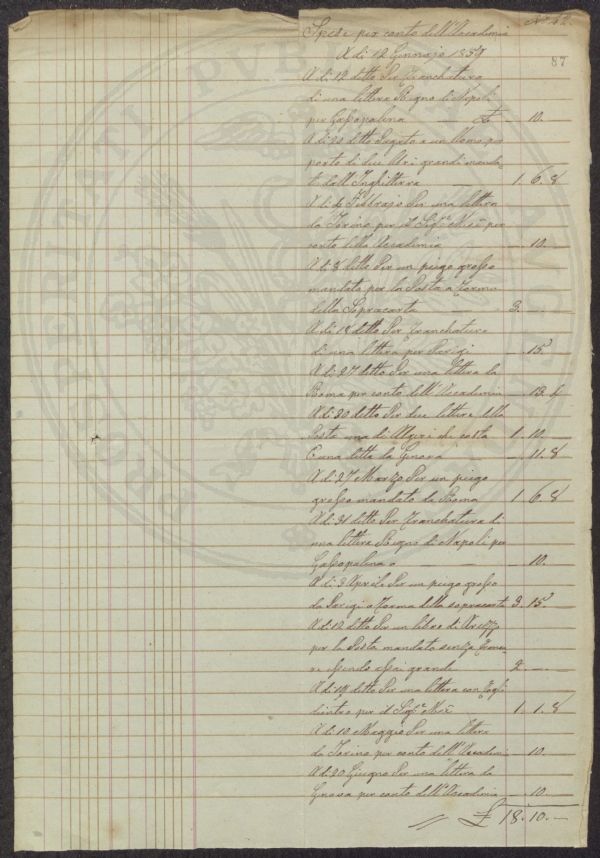 No. 42
87
Spese per conto dell'Accademia
A di 12 Gennajo 1839
A di 12 detto Per francatura
di una lettera Regno di Napoli
per Gassopalena £ -. 10. -
A di 20 detto Pagato a un Uomo per
porto di due Ari grandi manda-
ti dall'Inghilterra 1. 6. 8
A di Febbrajo Per una lettera
da Torino per il Sigr. per
conto della Accademia -. 10. -
A di 8 detto Per un piego grosso
mandato per la Posta a forma
della Sopracarta 3. -. -
A di 18 detto Per francatura
di una lettera per Parigi -. 15. -
A di 27 detto Per una lettera da
Roma per conto dell'Accademia -. 13. 4
A di 30 detto Per due lettere della
Posta una di Algeri che costa 1. 10. -
E una detta da Genova -. 11. 8
A di 27 Marzo Per un piego
grosso mandato da Roma 1. 6. 8
A di 31 detto Per francatura di
una lettera Regno di Napoli per
Gassopalena -. 10. -
A di 3 Aprile Per un piego grosso
da Parigi a forma della sopracarta 3. 15. -
A di 12 detto Per un libro di Arezzo
per la Posta mandato senza franca-
re essendo assai grande 2. -. -
A di 19 detto Per una lettera con
dentro per il Sigr. 1. 1. 8
A di 10 Maggio Per una lettera
da Torino per conto dell'Accademia -. 10. -
A di 20 Giugno Per una lettera da
Genova per conto dell'Accademia -. 10. -
£ 18. 10. -